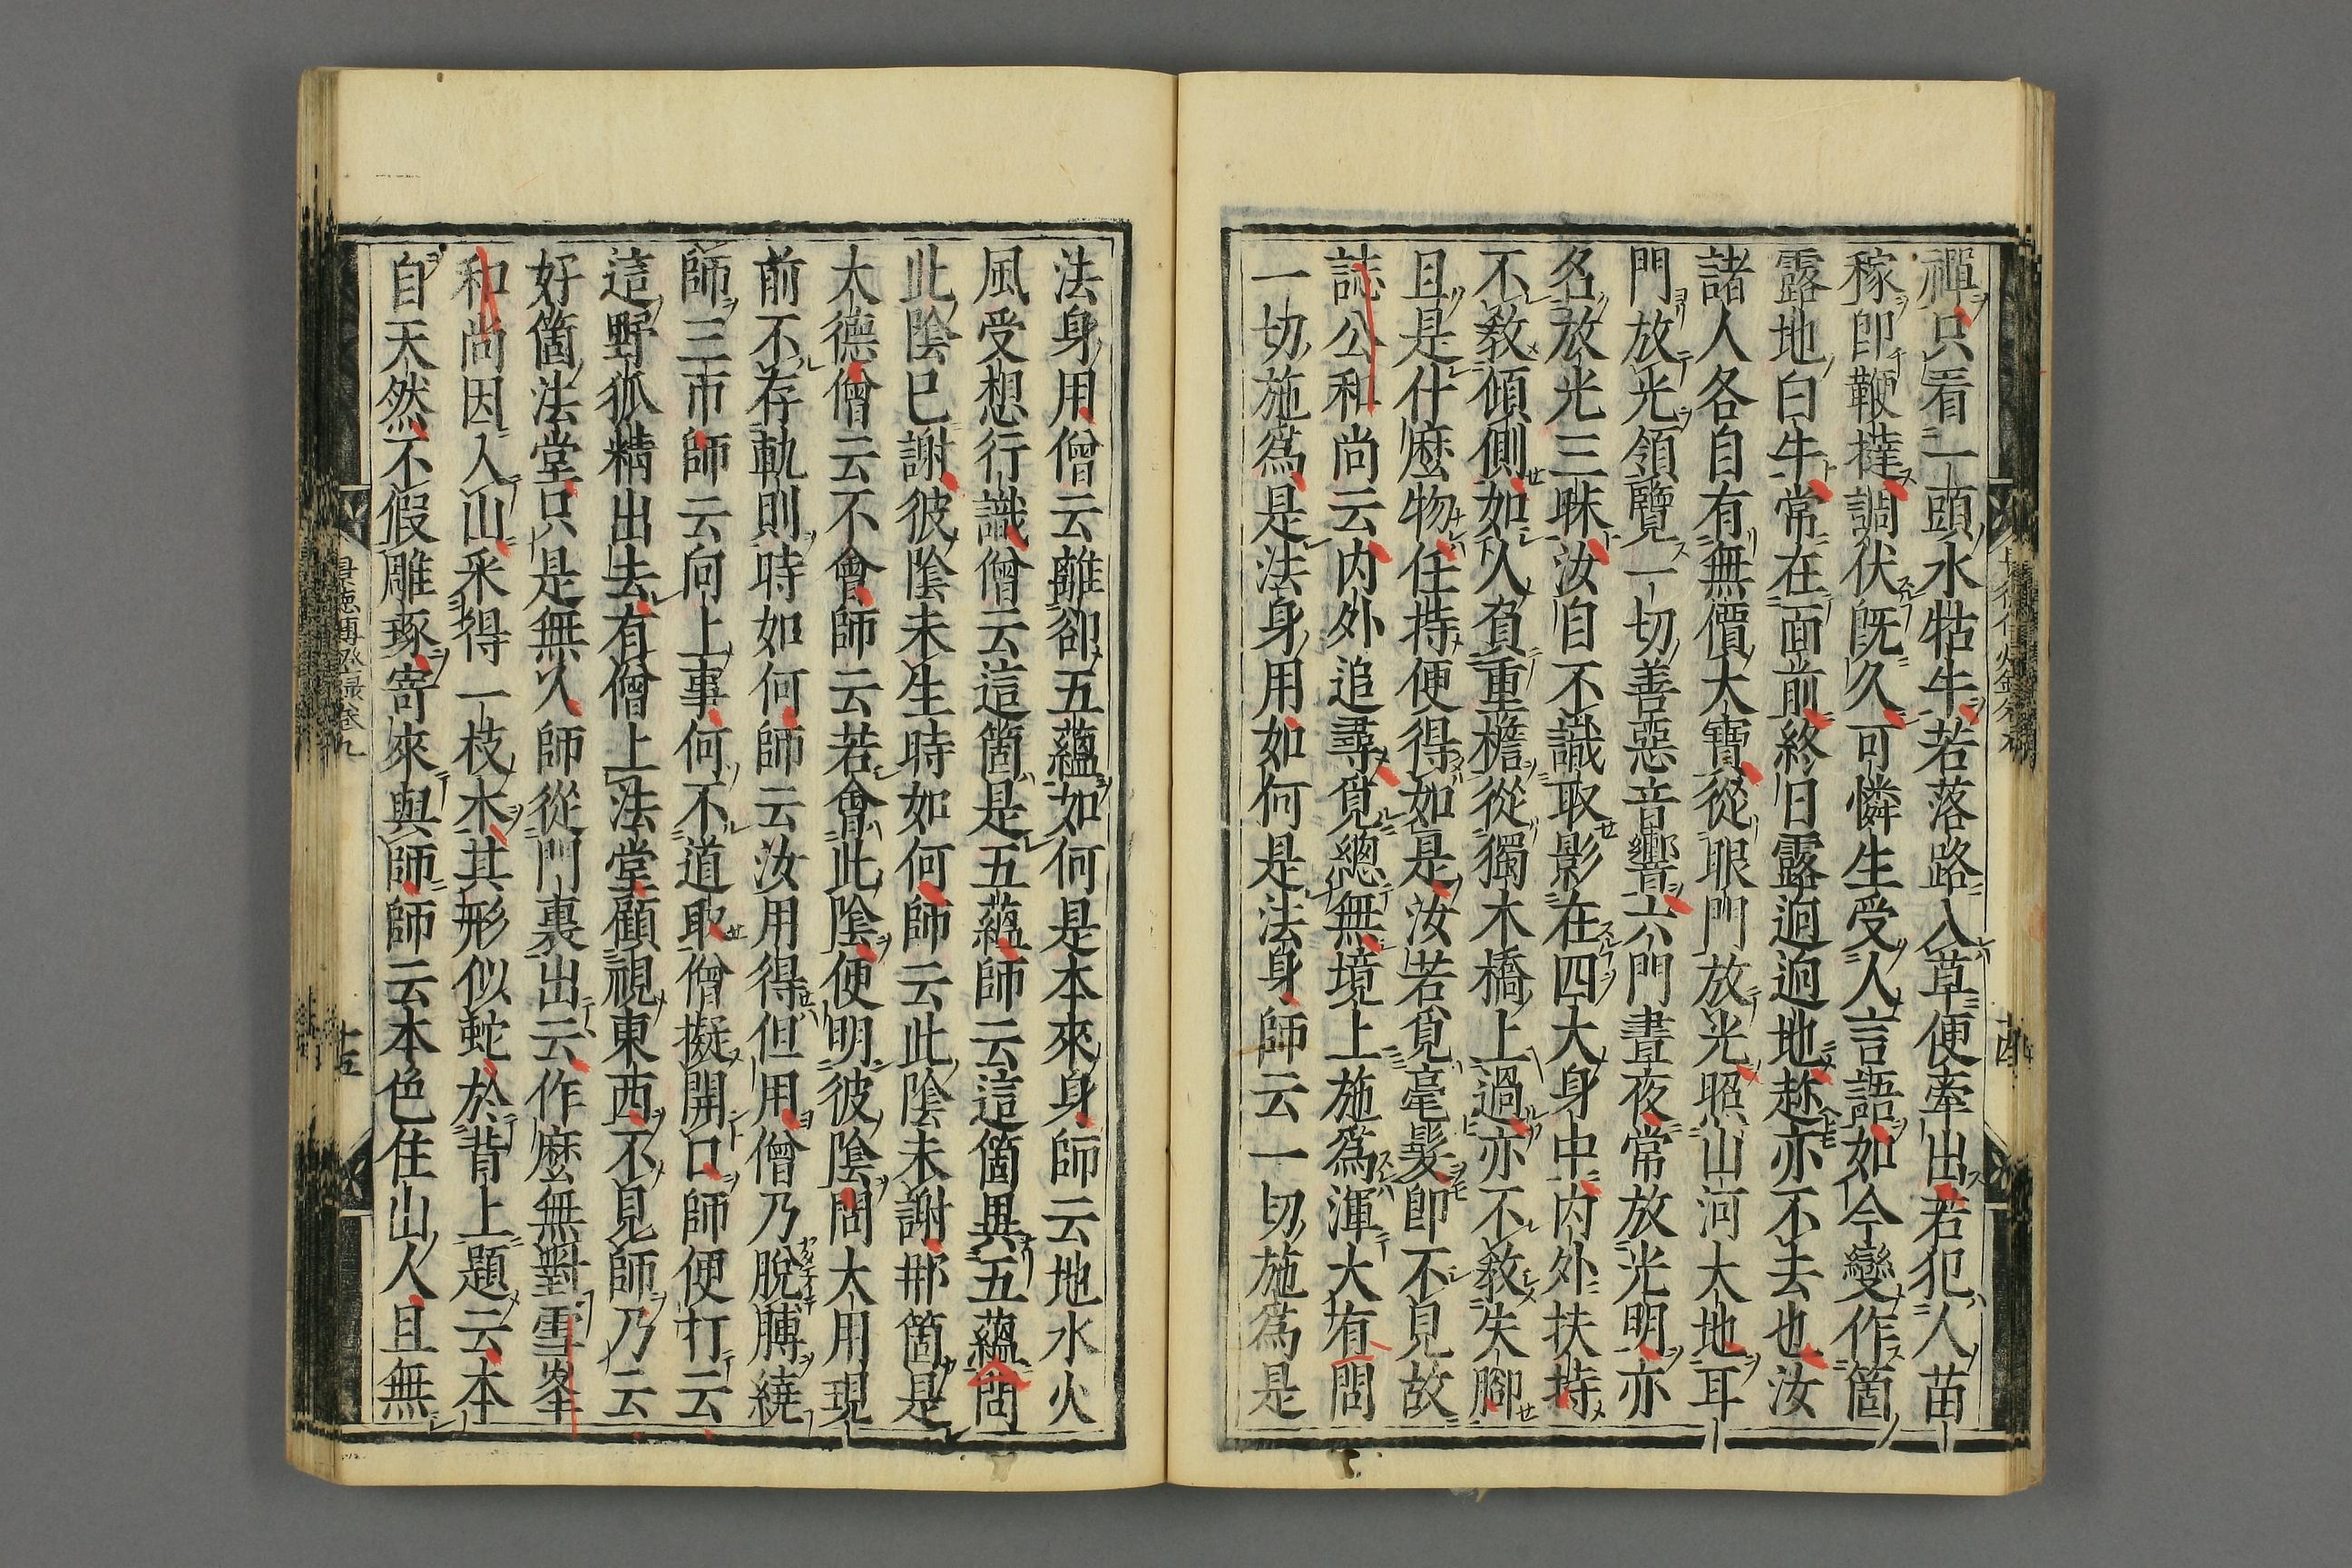 禪只看一頭水牯牛若落路入草便牽出若犯人苗
稼卽鞭撻調伏旣久可憐生受人言語如今變作箇
露地白牛常在面前終日露迥迥地趂亦不去也汝
諸人各自有無價大寶從眼門放光照山河大地耳
門放光領覽一切善惡音響六門晝夜常放光明亦
名放光三昧汝自不識取影在四大身中內外扶持
不敎傾側如人負重檐從獨木橋上過亦不敎失脚
且是什麽物任持便得如是汝若覓毫髮卽不見故
誌公和尚云內外追尋覓總無境上施爲渾大有問
一切施爲是法身用如何是法身師云一切施爲是
法身用僧云離卻五蘊如何是本來身師云地水火
風受想行識僧云這箇是五蘊師云這箇異五蘊問
此陰已謝彼陰未生時如何師云此陰未謝那箇是
大德僧云不會師云若會此陰便明彼陰問大用現
前不存軌則時如何師云汝用得但用僧乃脫膊繞
師三帀師云向上事何不道取僧擬開口師便打云
這野狐精出去有僧上法堂顧視東西不見師乃云
好箇法堂只是無人師從門裏出云作麽無對雪峯
和尚因入山采得一枝木其形似蛇於背上題云本
自天然不假雕琢寄來與師師云本色住山人且無
十五